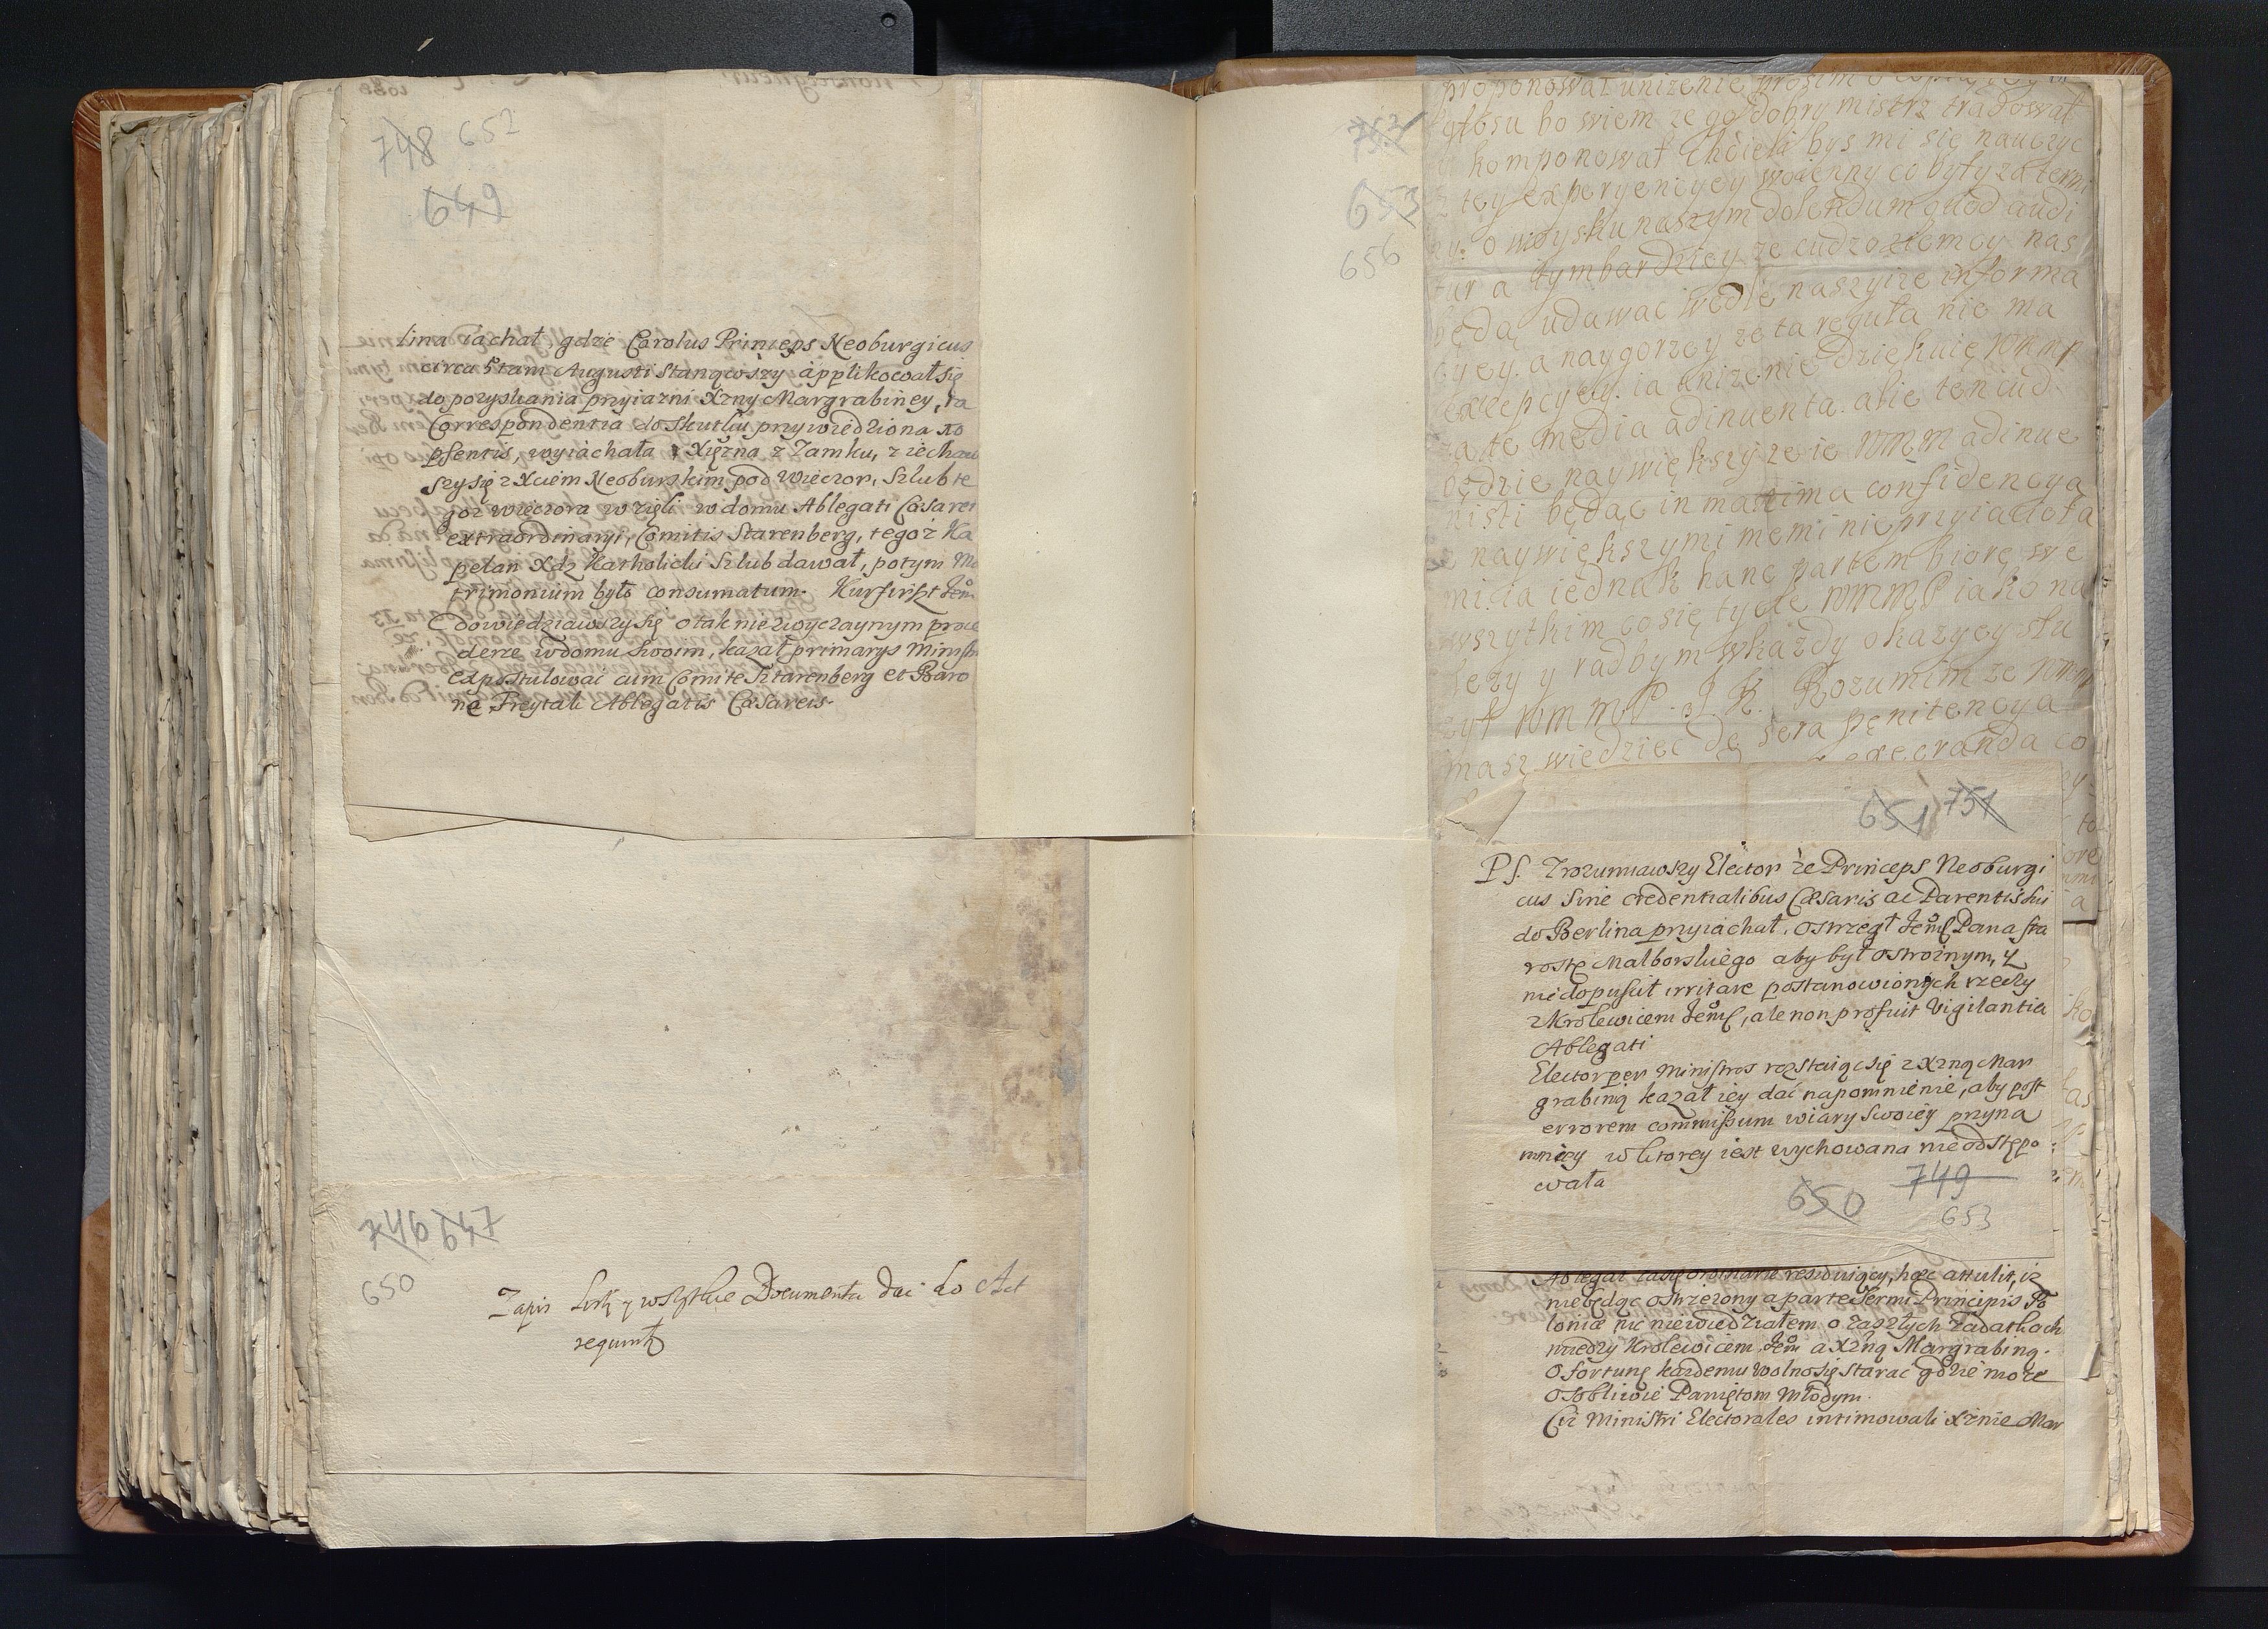 748 652
649
lina iachał, gdzie Carolus Princeps Neoburgicus
circa 5tam Augusti stanąwszy applikował się
do pozyskania przyiazni Xzny Margrabiney, ta
Correspondentia do skutku przywiedziona 10
psentis, wyiachała Xiężna z Zamku, ziechaw
szy się z Xciem Neoburskim pod wieczor, szlub te
goż wieczora wzięli w domu Ablegati Cæsarei
extraordinaryi, Comitis Starenberg, tegoż Ka
pelan Xdz Katholicki szlub dawał, potym Ma
trimonium było consumatum. Kurfirszt Jem
dowiedziawszy się o tak niezwyczaynym proce
derze w domu swoim, kazał primarys Ministris
expostulować cum Comite Sztarenberg et Baro
ne Freytali Ablegatis Cæsareis.
746 647
650
Zapis Listy y wszytkie Documenta dai do Act
751
653
656
proponował unizenie proszim
głosu bo wiem ze go dobry mistrz tradował
komponował Chcieli bys mi się nauczyc
tey experyencyey woienny co były za temi
o woysku naszym dolendum quod audi
tur a tymbardziey ze cudzoziemcy nas
będą udawac wedle naszyize informa
cyey. a naygorzey ze ta reguła nie ma
excepcyey. ia unizenie dziękuię wmmp
za te media adinuenta. alie ten cud
będzie naywiększy ze ie wmm adinue
nisti będąc in maxima confidencya
z naywiększymi memi nieprzyiacioła
mi. ia iednak hanc partem biorę we
wszytkim co się tyćle wmmP iako na
lezy y radbym w kazdy okazycy słu
zył wm m P. J K. Rozumim ze wmm
masz wiedziec de sera penitencya
execranda co
651 751
Ps. Zrozumiawszy Elector że Princeps Neoburgi
cus sine credentialibus Cæsaris ac Parentis sui
do Berlina przyiachał, ostrzegł Jem Pana sta
rostę Malborskiego aby był ostroznym, y
nie dopuscił irritare postanowionych rzeczy
z Krolewicem Jem, ale non profuit vigilantia
Ablegati
Elector per Ministros rozstaiąc się z Xzną Mar
grabiną kazał iey dać napomnienie, aby post
errorem commissum wiary swoiey przyna
mniey w ktorey iest wychowana nie odstępo
wała
650 749
653
Ablegat zasię ordinarie residuiący, hæc attulit, iż
nie będąc ostrzezony a parte Sermi Principis Po
loniæ nic nie wiedziałem o zaszłych Zadatkach
miedzy Krolewicem Jem a Xzną Margrabiną.
O fortunę kazdemu wolno się starac gdzie moze
osobliwie Paniętom młodym.
Ciż Ministri Electorales intimowali Xznie Mar